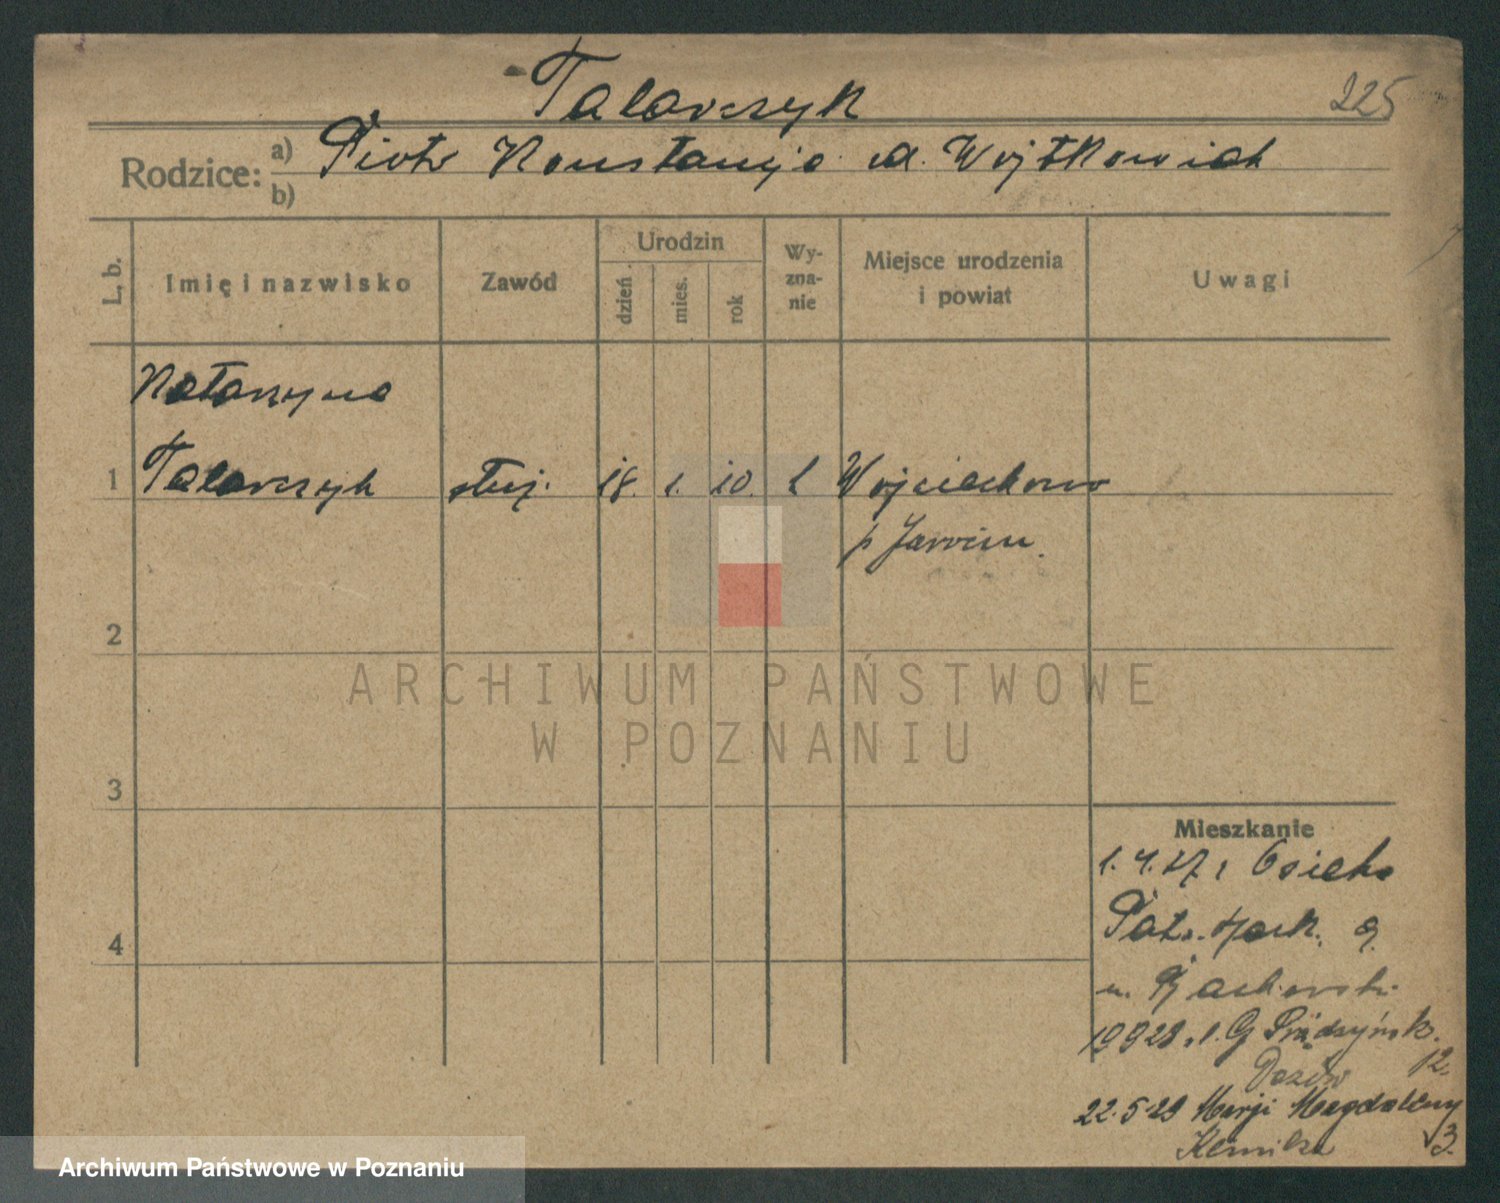 Talarczyk
225
Rodzice: a) Piotr Konstancja d. Wojtkowiak
b)
L. b. Imię i nazwisko Zawód Urodzin dzień mies. rok Wy-zna-nie Miejsce urodzenia i powiat Uwagi
Katarzyna
1 Talarczyk służ. 18. 1. 10. k Wojciechowo
p Jarocin.
2
3
4
Mieszkanie
1.4.27 Osieka
Patr. Jack. 9.
u.
19928 G Prądzyńsk.
12.
22.5.29 Marji Magdaleny
3.
ARCHIWUM PAŃSTWOWE
W POZNANIU
Archiwum Państwowe w Poznaniu